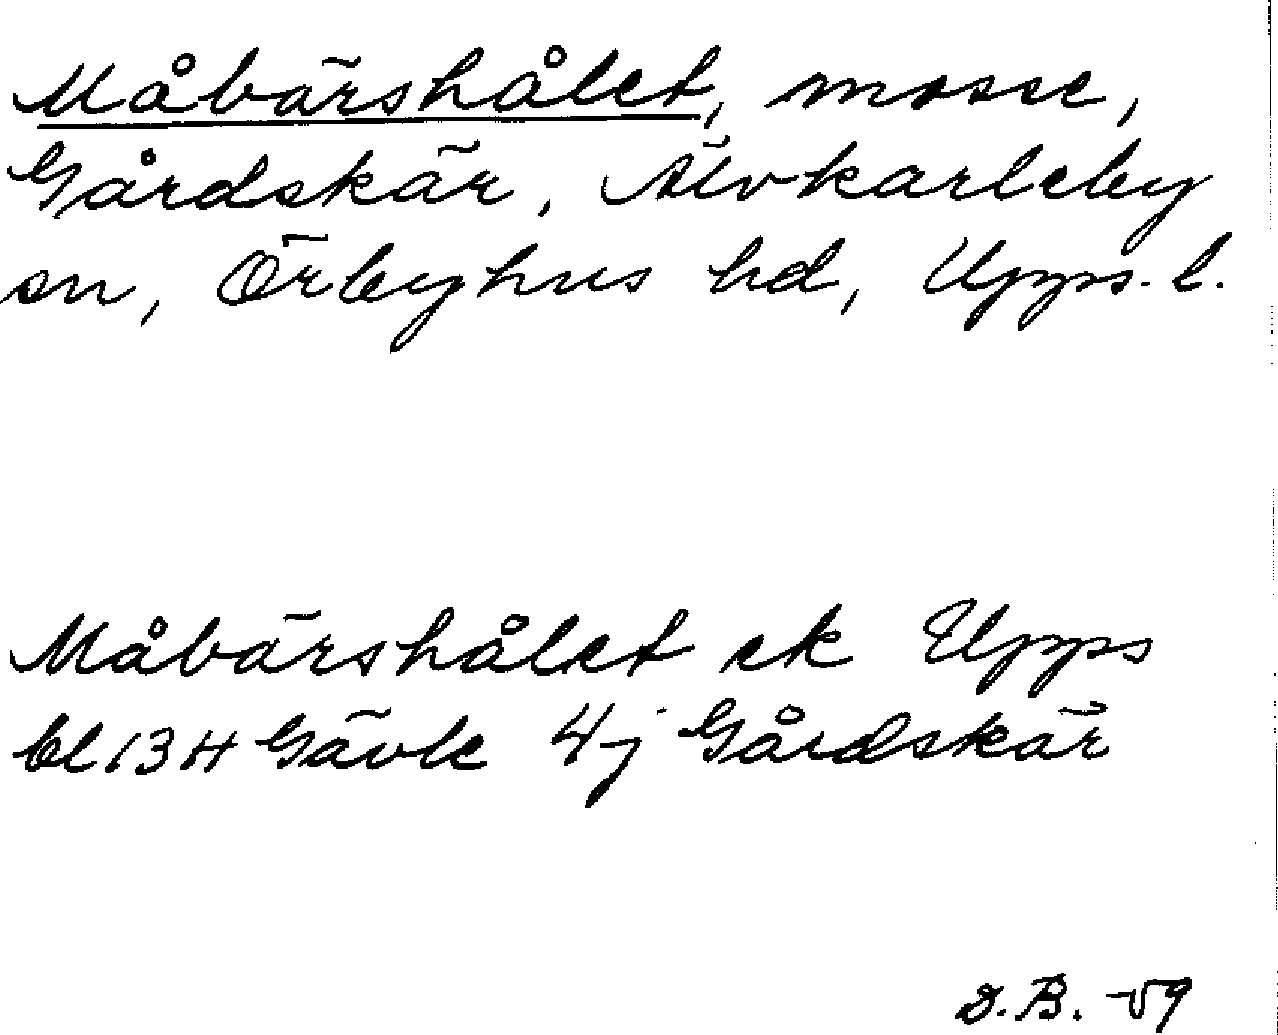 Måbärshålet, mosse,
Gårdskär, Älvkarleby
sn, Örbyhus hd, Upps. l.
Måbärshålet ek Upps
bl 13 H Gävle 4 j Gårdskär
D.B. -59